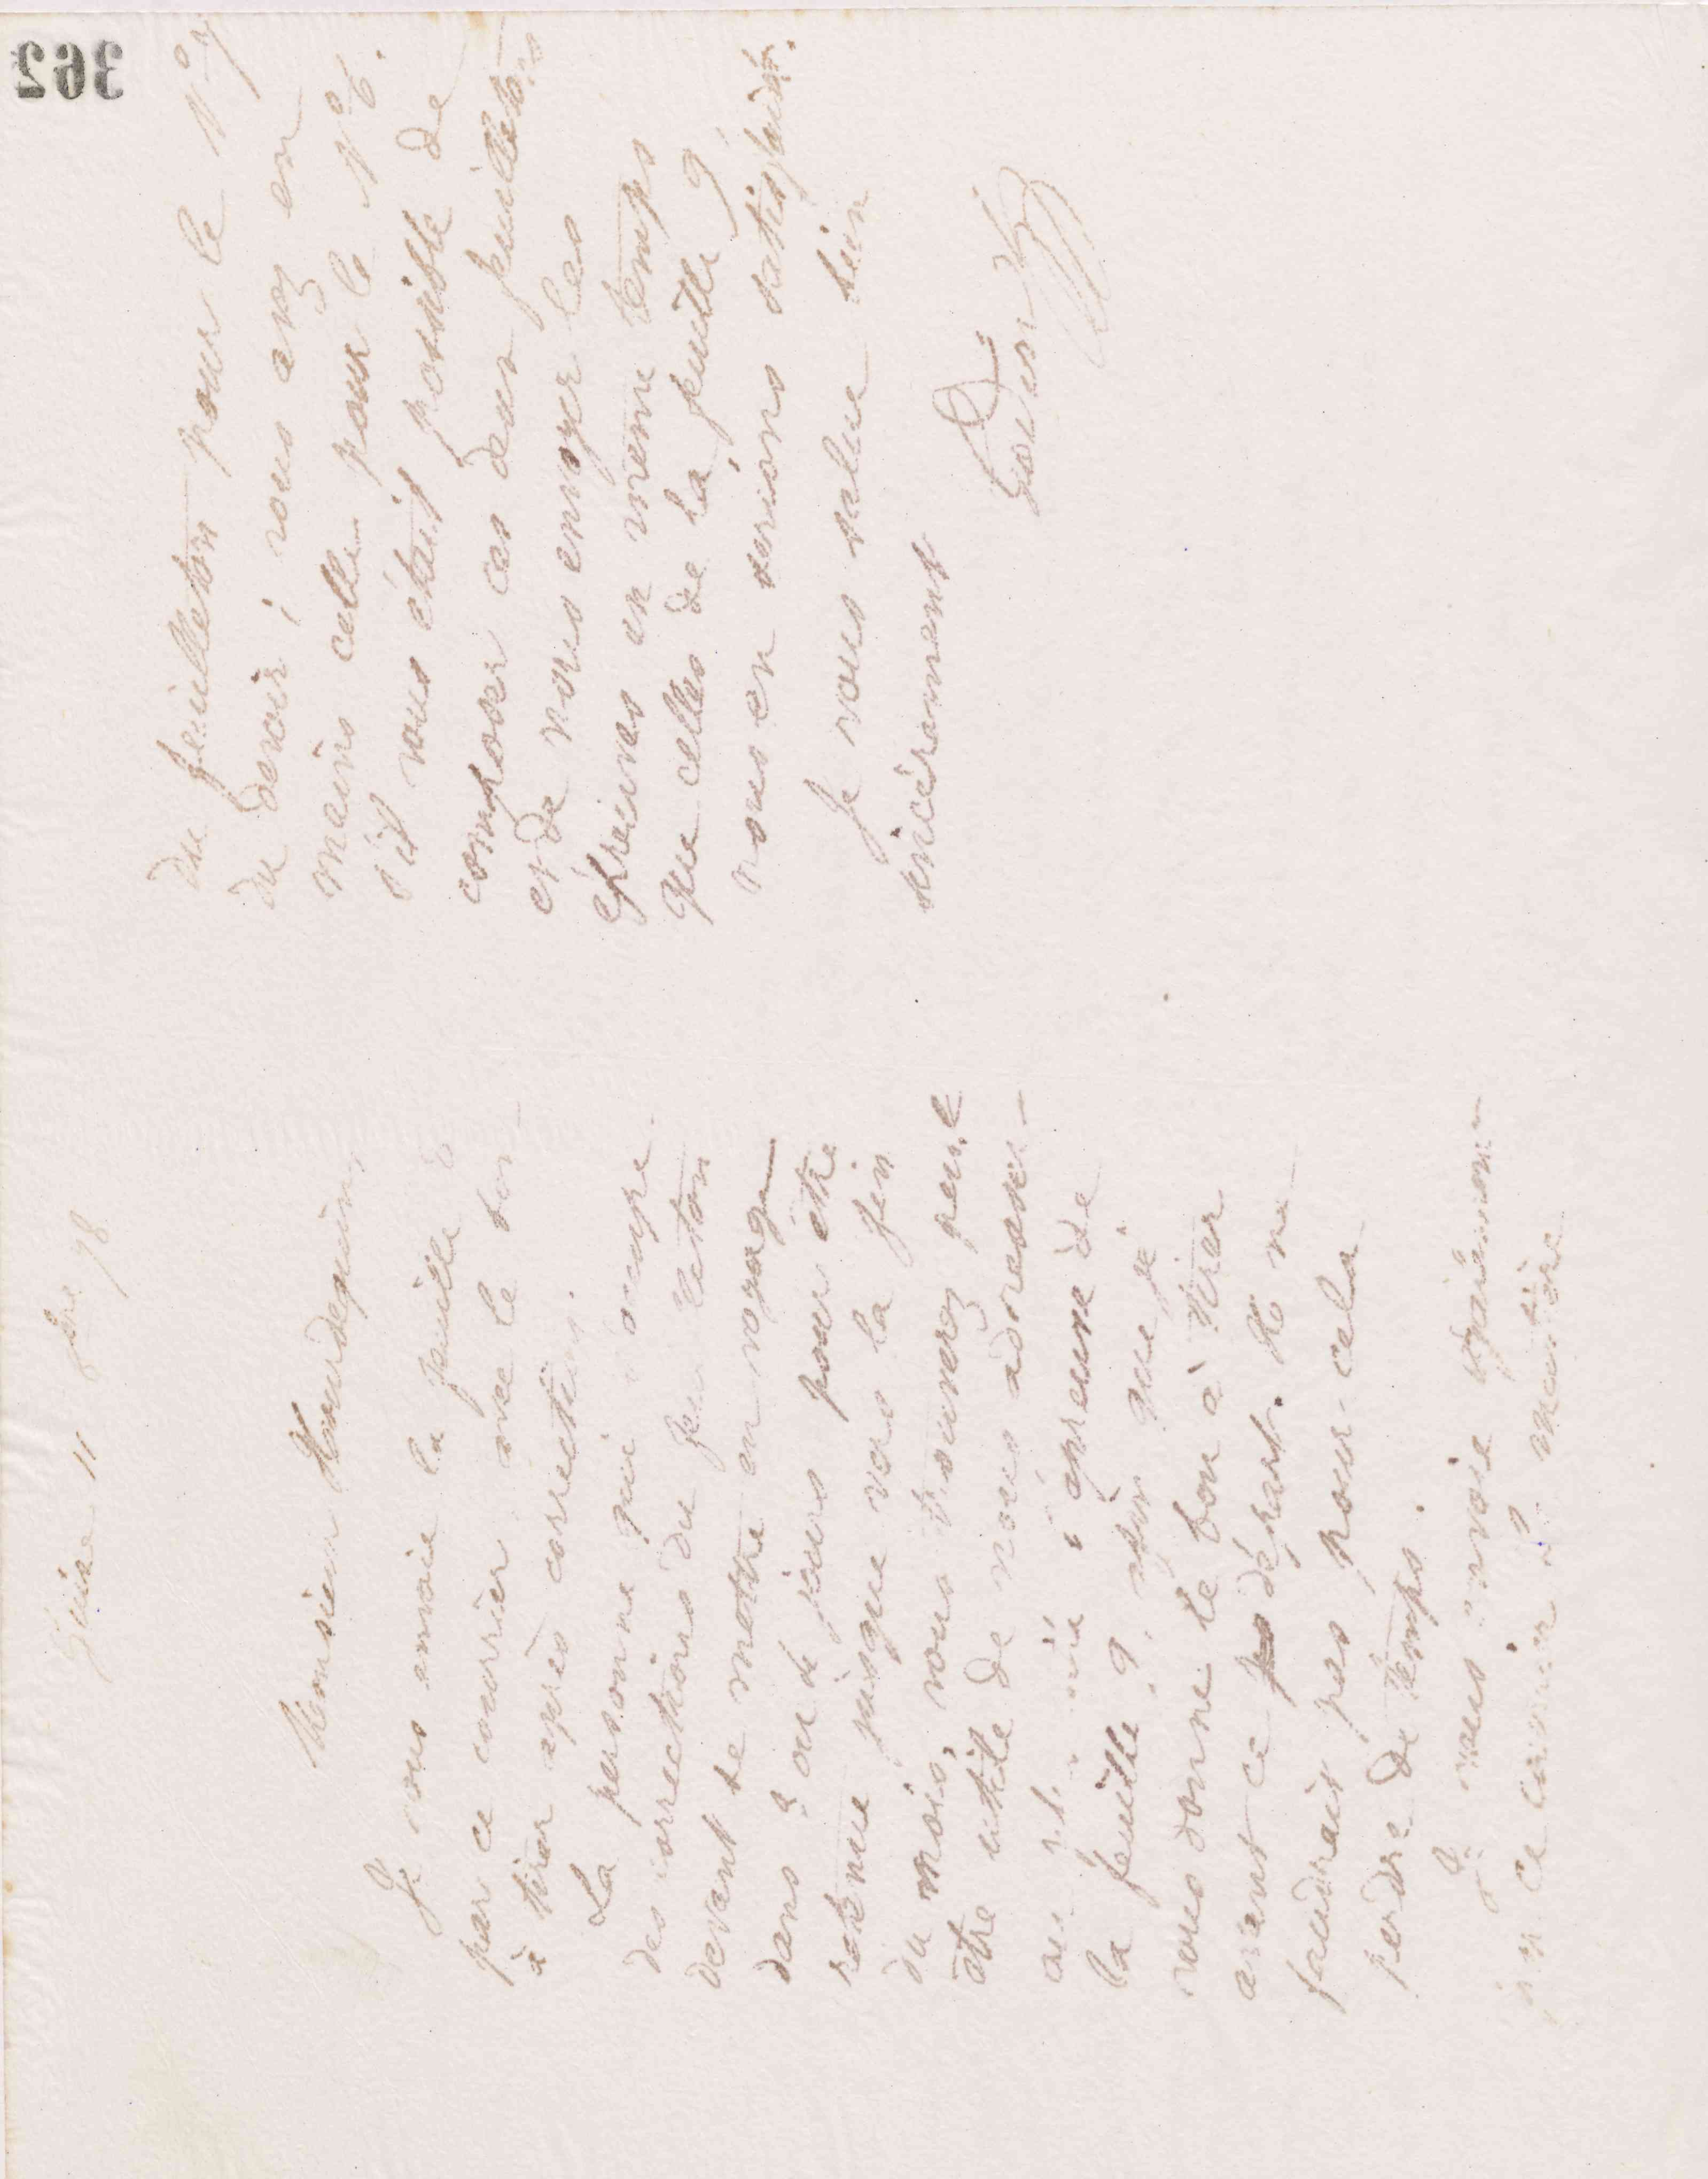 362
Guise 11 8bre 78
Monsieur Hourdequin,
Je vous envoie la feuille 8
par ce courrier avec le bon
à tirer après corrections.
La personne qui s'occupe
des corrections du feuilleton
devant se mettre en voyage
dans 3 ou 4 jours pour être
retenue jusque vers la fin
du mois, vous trouverez peut
être utile de nous adresser
épreuve de
la feuille 9 afin que je
vous donne le bon à tirer
avant ce départ. Il ne
faudrait pas pour cela
perdre de temps.
Je vous envoie également
par ce courrier la matière
du feuilleton pour le N° 7
du devoir; vous avez en
mains celle pour le N° 6.
S'il vous était possible de
composer ces deux feuilletons
et de nous envoyer les
épreuves en même temps
que celles de la feuille 9
nous en serions satisfaits.
Je vous salue bien
sincèrement
Godin